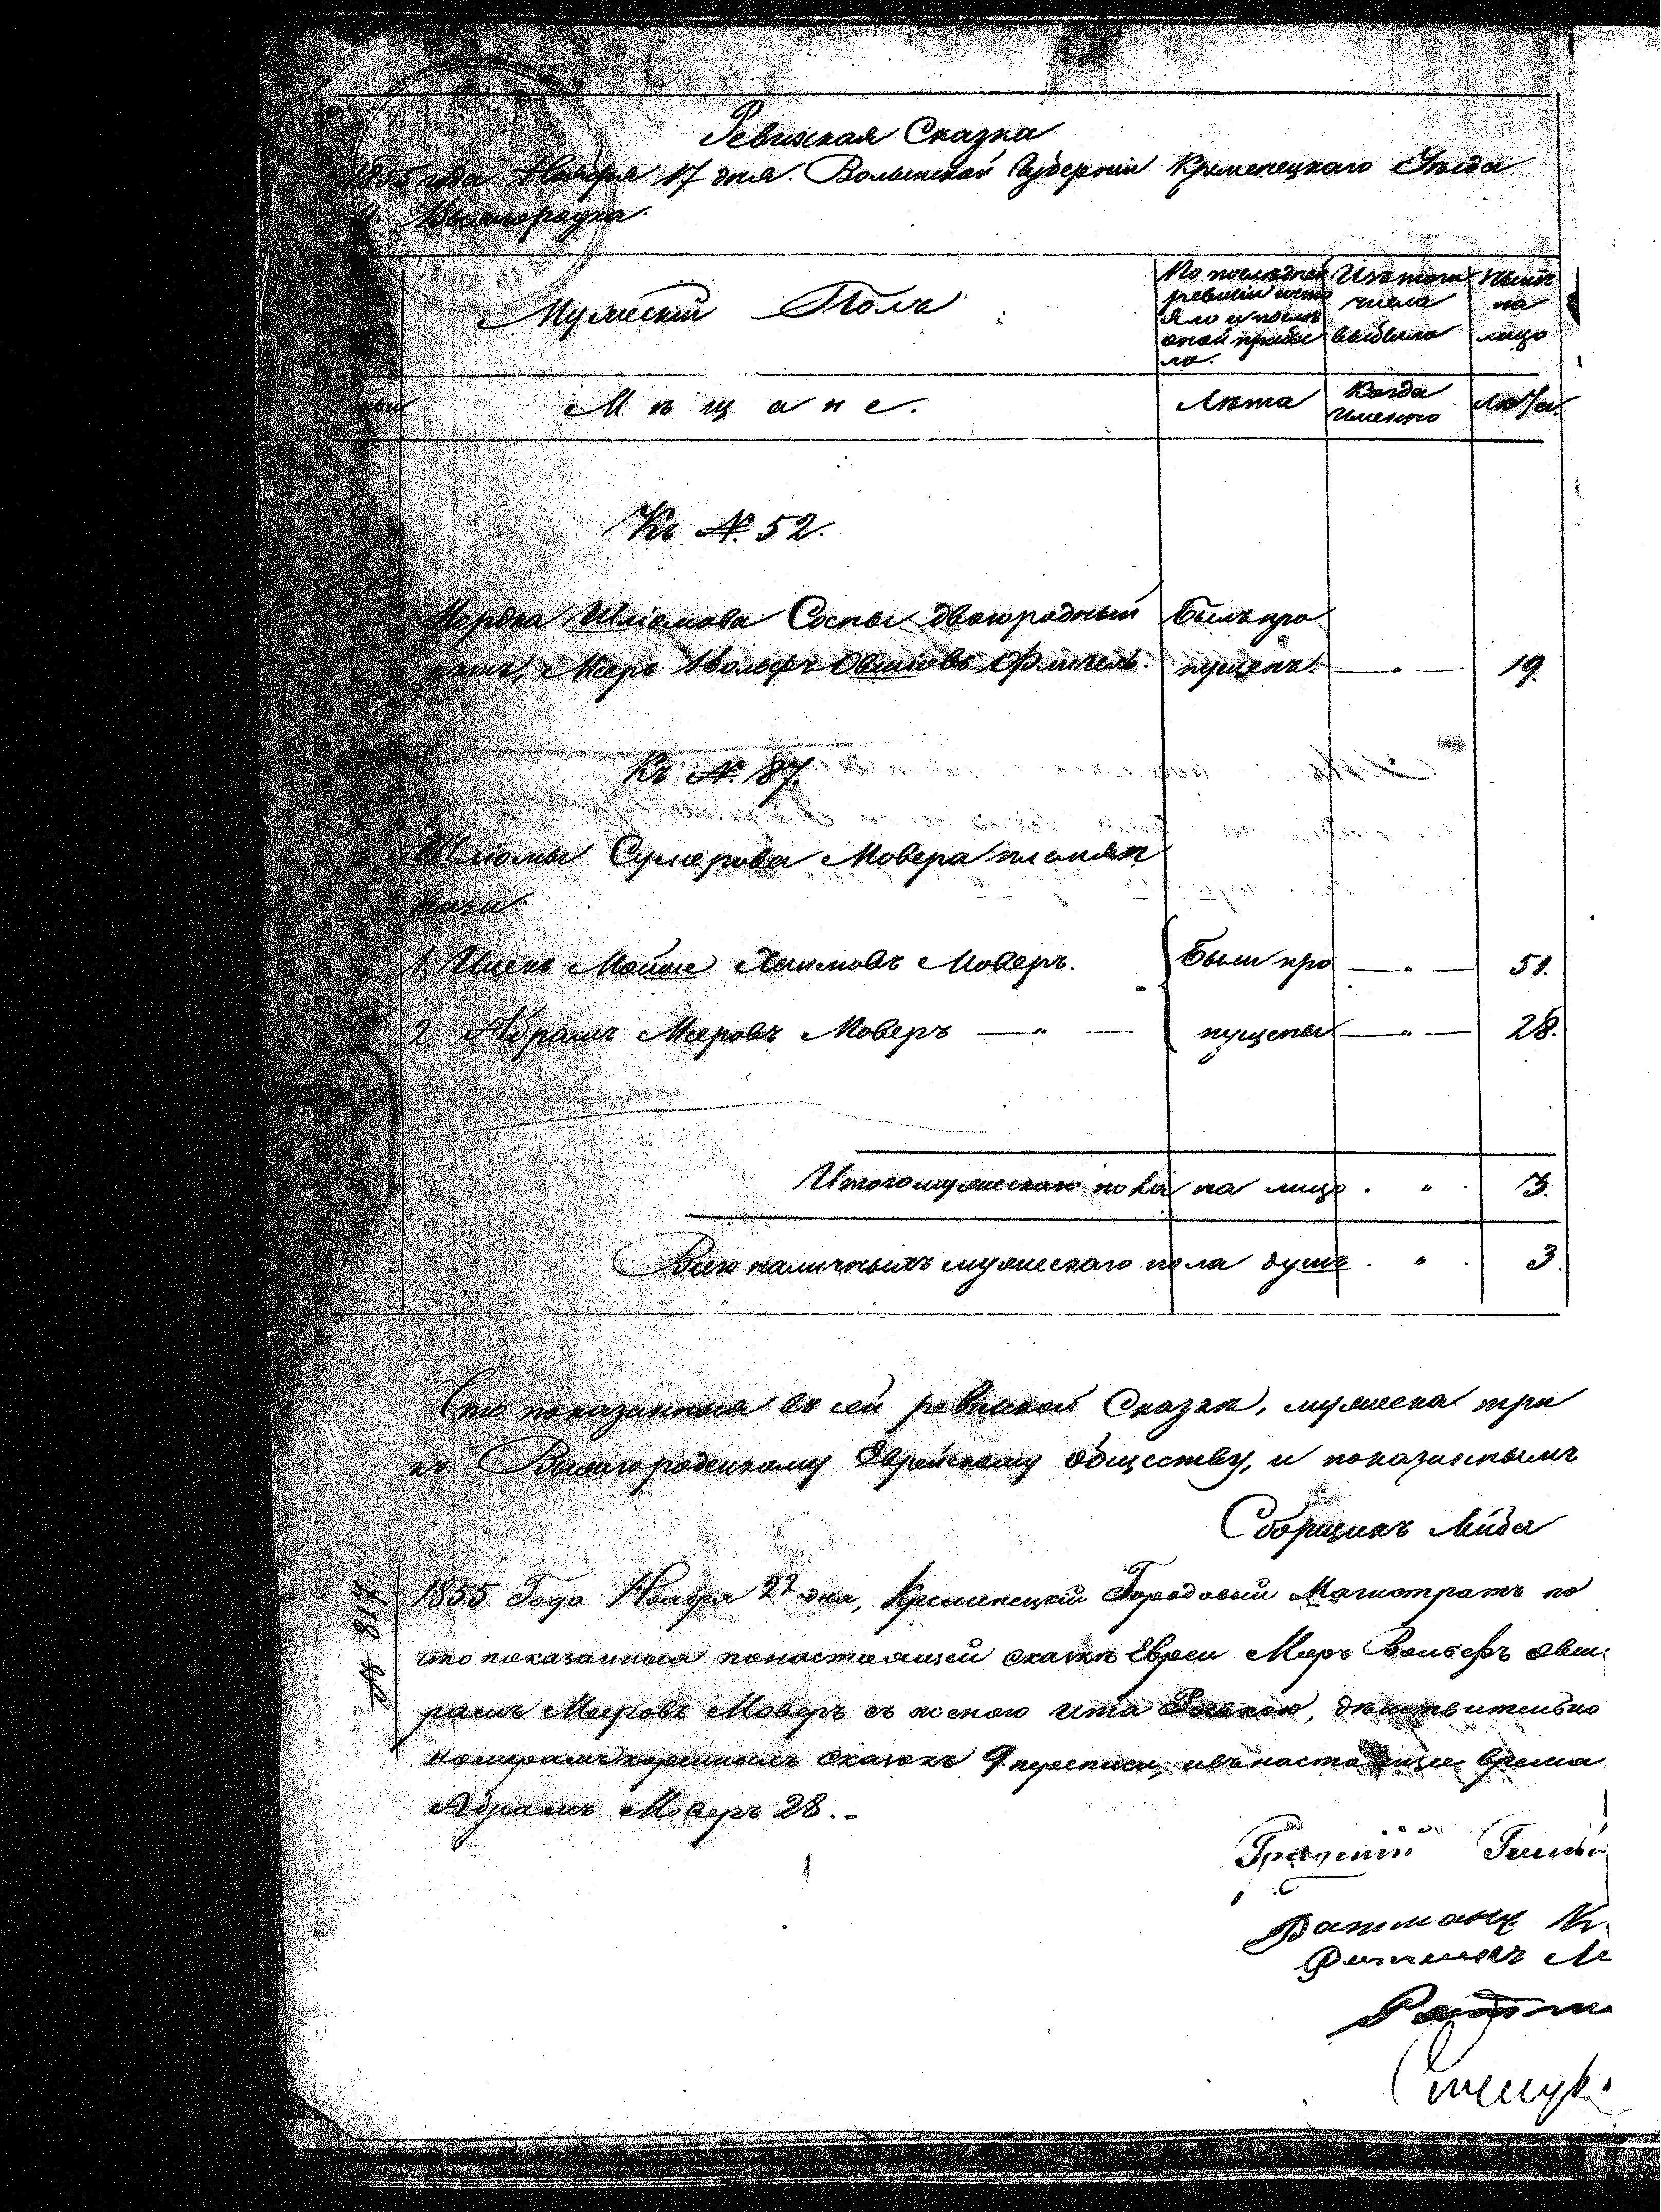 Ревизская Сказка
1855 года Ноября 17 дня. Волынской Губерніи Кременецкаго Уѣзда
М. Вышгородка
Мужескій Полъ
По послѣдней
ревизіи состо
яло и послѣ
оной прибы
ло.
Изъ того
числа
выбыло
Нынѣ
на
лицо
Мѣщане.
Лѣта
Когда
именно
Лѣта.
Къ №. 52.
Мордка Шліомова Соспы двоюродный
ратъ, Меръ Вольфъ Овшіовъ Фишель.
Былъ про
пущенъ. — " — 19.
Къ №. 87.
Шліомы Сумерова Мовера племян
ники
1. Ицекъ Мошко Хаимовъ Моверъ. Были про — " — 51.
2. Абрамъ Меровъ Моверъ — " — пущены — " — 28.
Итого мужескаго пола на лицо . " . 3.
Всего наличныхъ мужескаго пола душъ . " . 3.
Что показанныя въ сей ревизской Сказкѣ, мужеска три
къ Вышгородецкому Еврейскому обществу, и показаннымъ
Сборщикъ Лейба
№ 817
1855 Года Ноября 22 дня, Кременецкій Городовый Магистратъ по
что показанныя по настоящей сказкѣ Евреи Меръ Вольфъ Овш
рамъ Меровъ Моверъ съ женою Ита Ривкою, дѣйствительно
номерамъ кореннымъ сказокъ 9 переписи, и въ настоящее время
Абрамъ Моверъ 28.-
Ратманъ
Ратманъ М